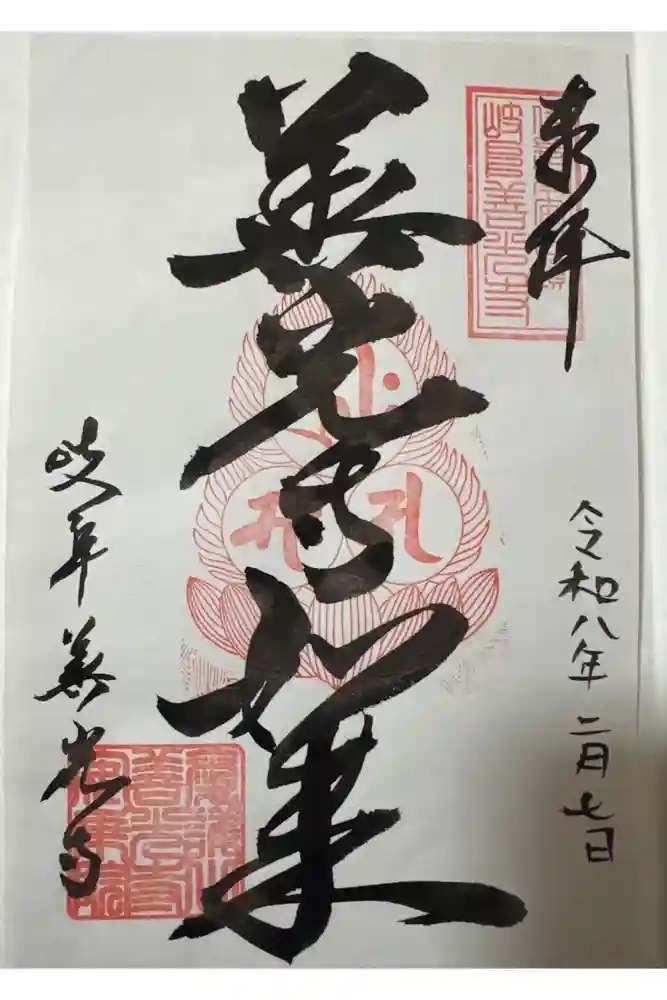 奉拝
岐阜善光寺
令和八年 二月七日
善光寺如来
岐阜善光寺